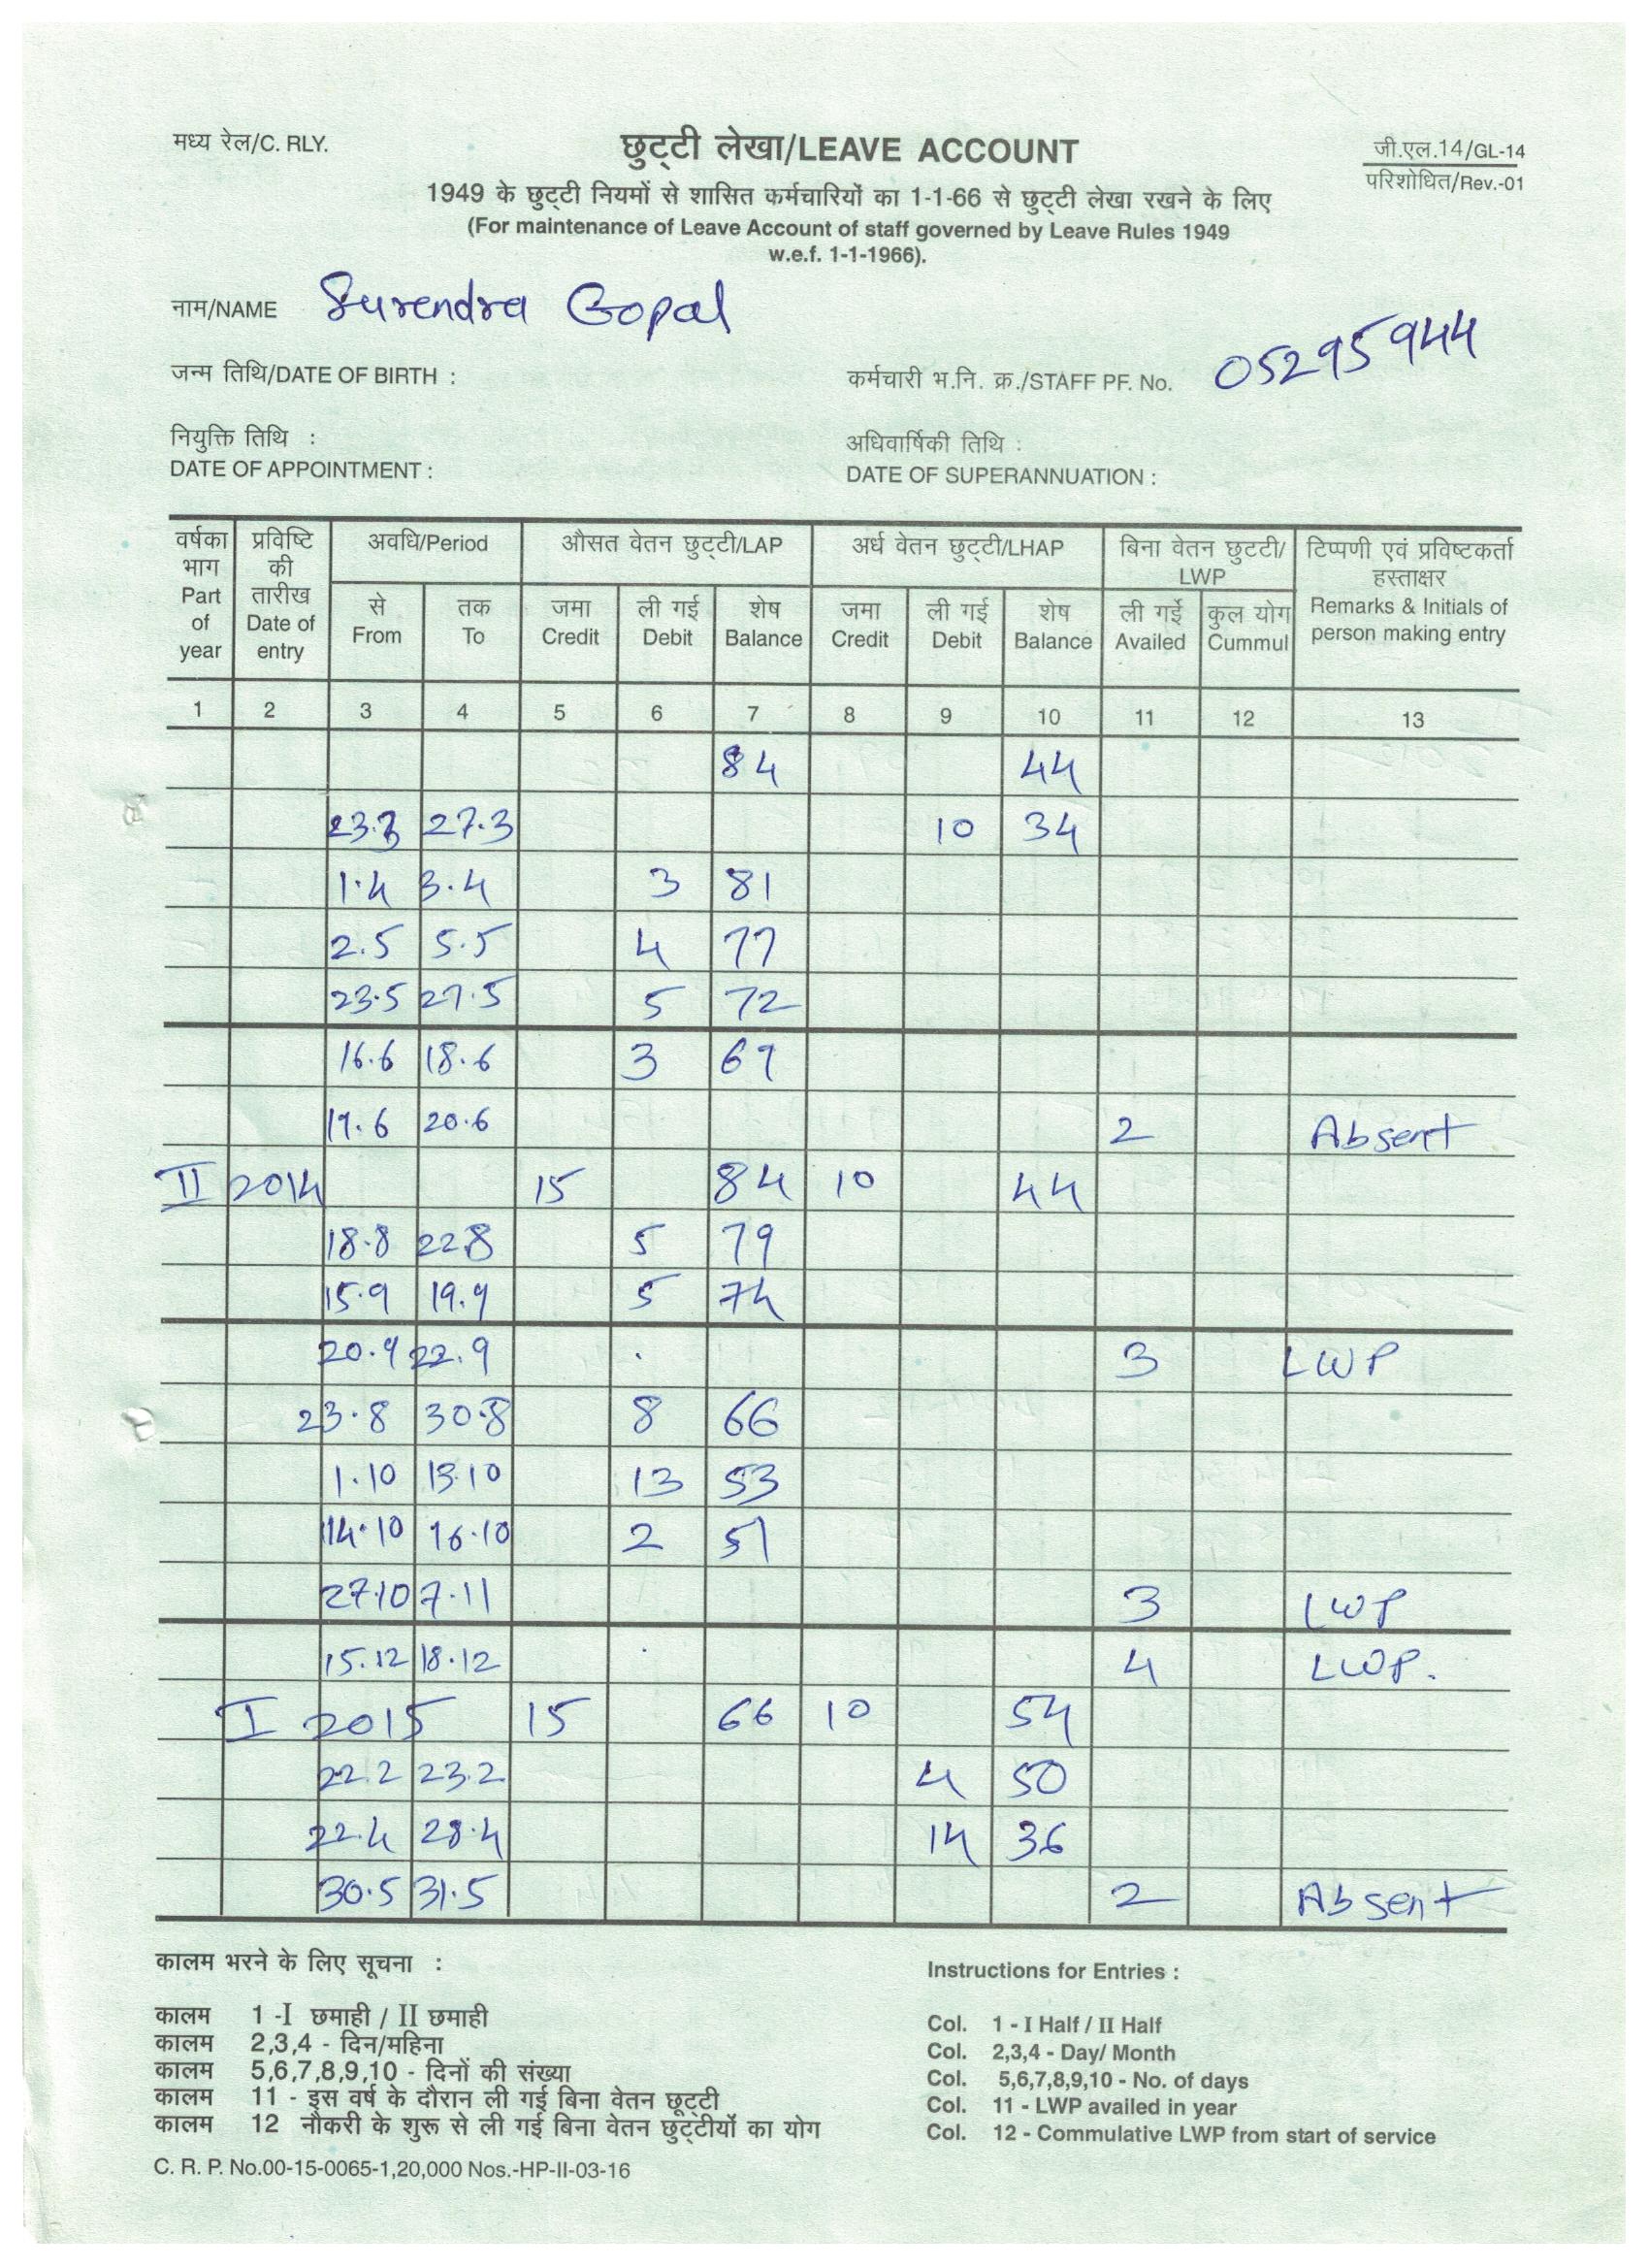 मध्य रेल/C. RLY.
छुट्टी लेखा/LEAVE ACCOUNT
जी.एल.14/GL-14
परिशोधित/Rev.-01
1949 के छुट्टी नियमों से शासित कर्मचारियों का 1-1-66 से छुट्टी लेखा रखने के लिए
(For maintenance of Leave Account of staff governed by Leave Rules 1949
w.e.f. 1-1-1966).
नाम/NAME Surendra Gopal
जन्म तिथि/DATE OF BIRTH :
कर्मचारी भ.नि. क्र./STAFF PF. No. 05295944
नियुक्ति तिथि :
DATE OF APPOINTMENT :
अधिवार्षिकी तिथि :
DATE OF SUPERANNUATION :
वर्षका भाग Part of year
प्रविष्टि की तारीख Date of entry
अवधि/Period
औसत वेतन छुट्टी/LAP
अर्ध वेतन छुट्टी/LHAP
बिना वेतन छुटटी/ LWP
टिप्पणी एवं प्रविष्टकर्ता हस्ताक्षर Remarks & Initials of person making entry
से From
तक To
जमा Credit
ली गई Debit
शेष Balance
जमा Credit
ली गई Debit
शेष Balance
ली गई Availed
कुल योग Cummul
1 2 3 4 5 6 7 8 9 10 11 12 13
84 44
23.3 27.3 10 34
1.4 3.4 3 81
2.5 5.5 4 77
23.5 27.5 5 72
16.6 18.6 3 69
19.6 20.6 2 Absent
II 2014 15 84 10 44
18.8 22.8 5 79
15.9 19.9 5 74
20.9 22.9 3 LWP
23.8 30.8 8 66
1.10 13.10 13 53
14.10 16.10 2 51
27.10 7.11 3 LWP
15.12 18.12 4 LWP.
I 2015 15 66 10 54
22.2 23.2 4 50
22.4 28.4 14 36
30.5 31.5 2 Absent
कालम भरने के लिए सूचना :
कालम 1 -I छमाही / II छमाही
कालम 2,3,4 - दिन/महिना
कालम 5,6,7,8,9,10 - दिनों की संख्या
कालम 11 - इस वर्ष के दौरान ली गई बिना वेतन छूट्टी
कालम 12 नौकरी के शुरू से ली गई बिना वेतन छुट्टीयों का योग
Instructions for Entries :
Col. 1 - I Half / II Half
Col. 2,3,4 - Day/ Month
Col. 5,6,7,8,9,10 - No. of days
Col. 11 - LWP availed in year
Col. 12 - Commulative LWP from start of service
C. R. P. No.00-15-0065-1,20,000 Nos.-HP-II-03-16